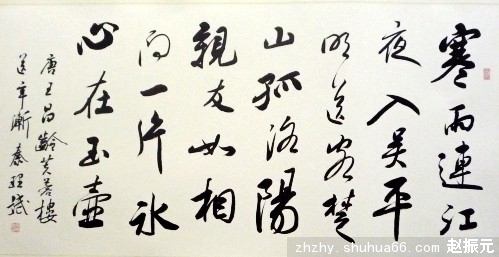 寒雨連江
夜入吴平
明送客楚
山孤洛陽
親友如相
问一片冰
心在玉壺
唐王昌齡芙蓉樓
送辛漸 秦
zhzhy.shuhua66.com 赵振元